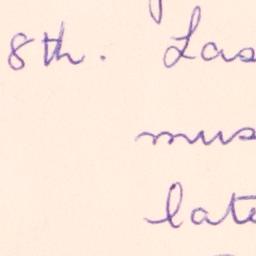 8th. Las
mus
late